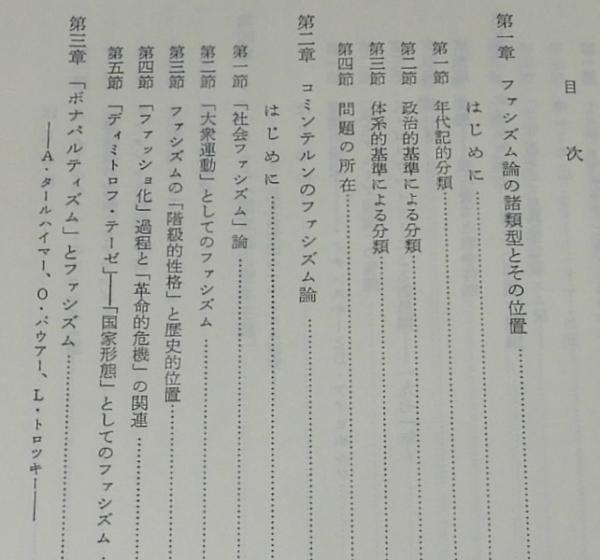 目次
第一章 ファシズム論の諸類型とその位置………
はじめに………
第一節 年代記的分類………
第二節 政治的基準による分類………
第三節 体系的基準による分類………
第四節 問題の所在………
第二章 コミンテルンのファシズム論………
はじめに………
第一節 「社会ファシズム」論………
第二節 「大衆運動」としてのファシズム………
第三節 ファシズムの「階級的性格」と歴史的位置………
第四節 「ファッショ化」過程と「革命的危機」の関連………
第五節 「ディミトロフ・テーゼ」――「国家形態」としてのファシズム…
第三章 「ボナパルティズム」とファシズム………
――A・タールハイマー、O・バウアー、L・トロツキー――